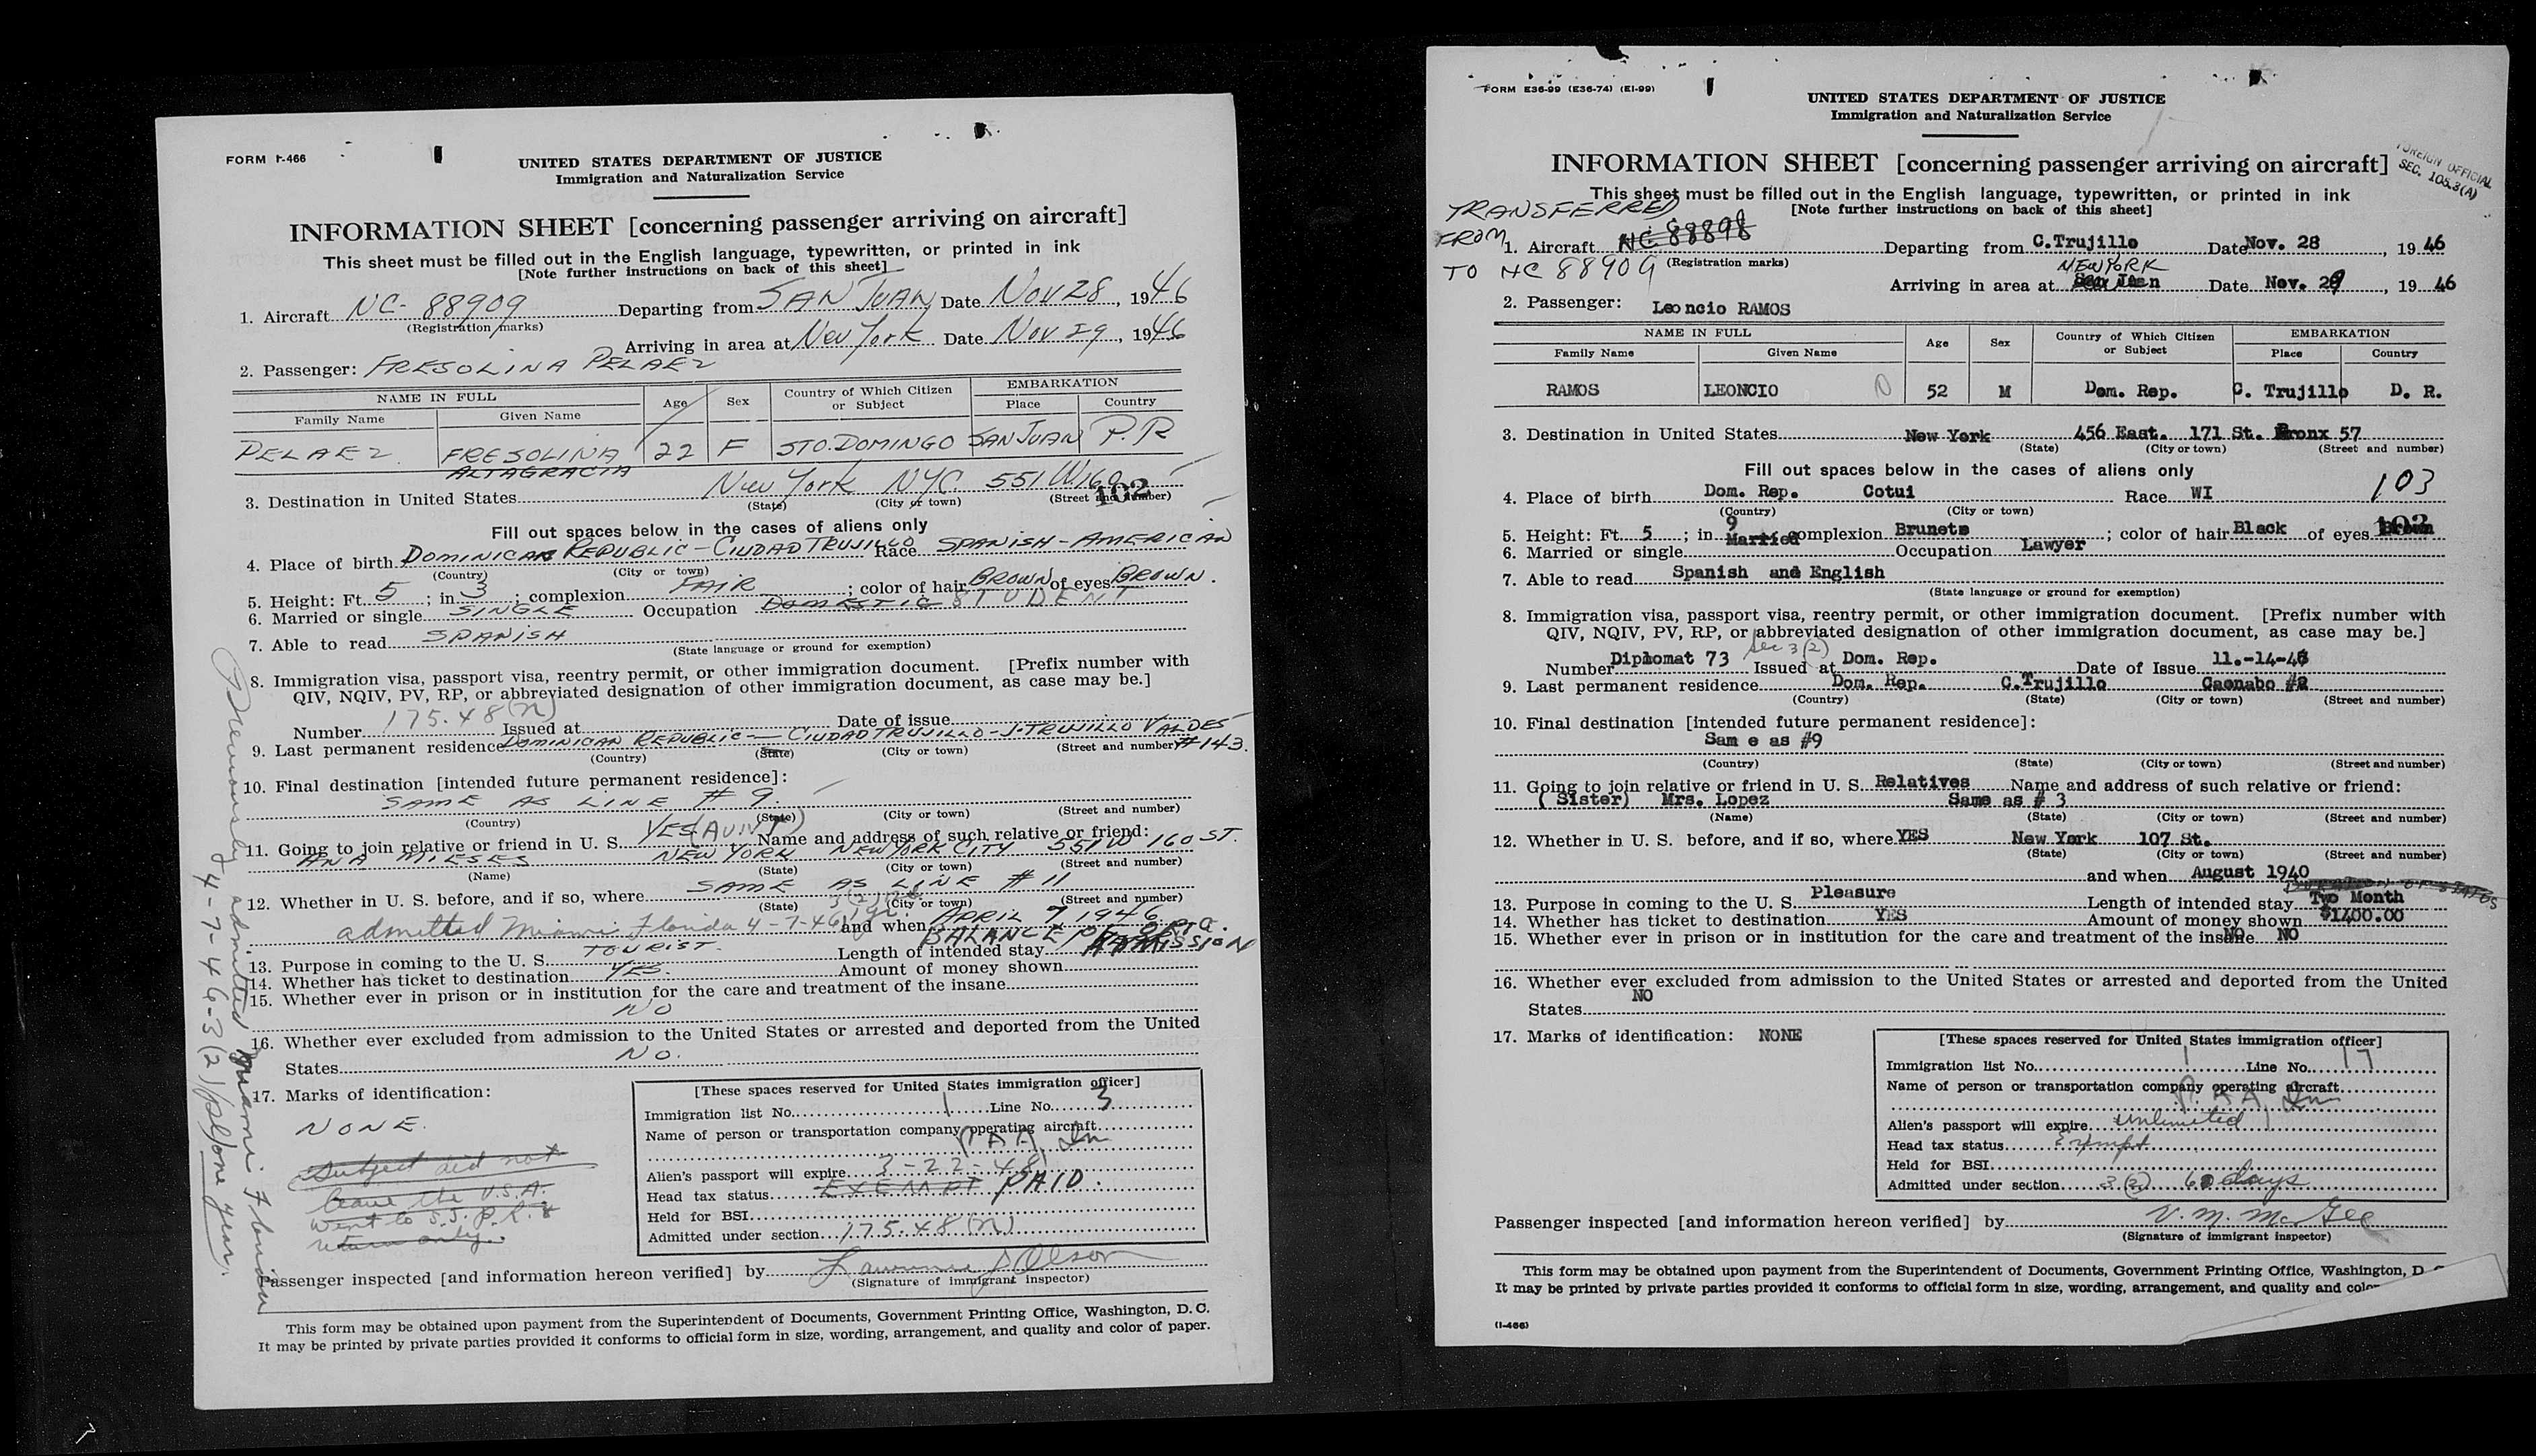 FORM I-466
UNITED STATES DEPARTMENT OF JUSTICE
Immigration and Naturalization Service
INFORMATION SHEET [concerning passenger arriving on aircraft]
This sheet must be filled out in the English language, typewritten, or printed in ink
[Note further instructions on back of this sheet]
1. Aircraft NC-88909 Departing from SAN JUAN Date Nov 28, 1946
(Registration marks)
Arriving in area at New York Date Nov 29, 1946
2. Passenger: FRESOLINA PELAEZ
NAME IN FULL Age Sex Country of Which Citizen or Subject EMBARKATION
Family Name Given Name Place Country
PELAEZ FRESOLINA 22 F STO. DOMINGO SAN JUAN P.R
ALTAGRACIA
3. Destination in United States New York NYC. 551 W 160
(State) (City or town) (Street and number)
102
Fill out spaces below in the cases of aliens only
4. Place of birth DOMINICAN REPUBLIC - CIUDAD TRUJILLO Race SPANISH-AMERICAN
(Country) (City or town)
5. Height: Ft. 5; in 3; complexion FAIR; color of hair BROWN of eyes BROWN.
6. Married or single SINGLE Occupation DOMESTIC STUDENT
7. Able to read SPANISH
(State language or ground for exemption)
8. Immigration visa, passport visa, reentry permit, or other immigration document. [Prefix number with
QIV, NQIV, PV, RP, or abbreviated designation of other immigration document, as case may be.]
Number 175.48(n) Issued at Date of issue
9. Last permanent residence DOMINICAN REPUBLIC - CIUDAD TRUJILLO - J. TRUJILLO VALDES #143.
(Country) (State) (City or town) (Street and number)
10. Final destination [intended future permanent residence]:
SAME AS LINE # 9.
(Country) (State) (City or town) (Street and number)
11. Going to join relative or friend in U. S. YES (AUNT) Name and address of such relative or friend:
ANA MIESES NEW YORK NEW YORK CITY 551 W 160 ST.
(Name) (State) (City or town) (Street and number)
12. Whether in U. S. before, and if so, where SAME AS LINE # 11
(State) (City or town) (Street and number)
admitted Miami Florida 4-7-46 1 yr. and when APRIL 7 1946
13. Purpose in coming to the U. S. TOURIST. Length of intended stay BALANCE OF ORIG. ADMISSION
14. Whether has ticket to destination YES. Amount of money shown
15. Whether ever in prison or in institution for the care and treatment of the insane
NO
16. Whether ever excluded from admission to the United States or arrested and deported from the United
States NO.
17. Marks of identification:
NONE.
Subject did not
leave the U.S.A.
went to S.J. P.R. &
return only.
[These spaces reserved for United States immigration officer]
Immigration list No. 1 Line No. 3
Name of person or transportation company operating aircraft
P A A, In
Alien's passport will expire 3-22-48
Head tax status EXEMPT PAID.
Held for BSI
Admitted under section 175.48(n)
Passenger inspected [and information hereon verified] by Lawrence Olson
(Signature of immigrant inspector)
This form may be obtained upon payment from the Superintendent of Documents, Government Printing Office, Washington, D. C.
It may be printed by private parties provided it conforms to official form in size, wording, arrangement, and quality and color of paper.
Previously admitted Miami Florida
4-7-46-3(2) one year.
FORM E36-99 (E36-74) (E1-99)
UNITED STATES DEPARTMENT OF JUSTICE
Immigration and Naturalization Service
INFORMATION SHEET [concerning passenger arriving on aircraft]
FOREIGN OFFICIAL
SEC. 105.3(A)
This sheet must be filled out in the English language, typewritten, or printed in ink
[Note further instructions on back of this sheet]
TRANSFERRED
FROM
1. Aircraft NC 88898 Departing from C.Trujillo Date Nov. 28, 1946
(Registration marks)
TO NC 88909
NEW YORK
Arriving in area at San Juan Date Nov. 29, 1946
2. Passenger: Leoncio RAMOS
NAME IN FULL Age Sex Country of Which Citizen or Subject EMBARKATION
Family Name Given Name Place Country
RAMOS LEONCIO 52 M Dom. Rep. C. Trujillo D. R.
3. Destination in United States New York 456 East. 171 St. Bronx 57
(State) (City or town) (Street and number)
Fill out spaces below in the cases of aliens only
103
4. Place of birth Dom. Rep. Cotui Race WI
(Country) (City or town)
102
5. Height: Ft. 5; in 9 complexion Brunete; color of hair Black of eyes Brown
6. Married or single Married Occupation Lawyer
7. Able to read Spanish and English
(State language or ground for exemption)
8. Immigration visa, passport visa, reentry permit, or other immigration document. [Prefix number with
QIV, NQIV, PV, RP, or abbreviated designation of other immigration document, as case may be.]
Sec 3(2)
Number Diplomat 73 Issued at Dom. Rep. Date of Issue 11.-14-46
9. Last permanent residence Dom. Rep. C.Trujillo Caonabo #2
(Country) (State) (City or town) (Street and number)
10. Final destination [intended future permanent residence]:
Sam e as #9
(Country) (State) (City or town) (Street and number)
11. Going to join relative or friend in U. S. Relatives Name and address of such relative or friend:
( Sister) Mrs. Lopez Same as # 3
(Name) (State) (City or town) (Street and number)
12. Whether in U. S. before, and if so, where YES New York 107 St.
(State) (City or town) (Street and number)
and when August 1940
DURATION OF STATUS
13. Purpose in coming to the U. S. Pleasure Length of intended stay Two Month
14. Whether has ticket to destination YES Amount of money shown $1400.00
15. Whether ever in prison or in institution for the care and treatment of the insane NO
16. Whether ever excluded from admission to the United States or arrested and deported from the United
States NO
17. Marks of identification: NONE
[These spaces reserved for United States immigration officer]
Immigration list No. 1 Line No. 17
Name of person or transportation company operating aircraft
P A A, In
Alien's passport will expire Unlimited
Head tax status Exempt
Held for BSI
Admitted under section 3(2) 60 days
Passenger inspected [and information hereon verified] by V. M. McGee
(Signature of immigrant inspector)
This form may be obtained upon payment from the Superintendent of Documents, Government Printing Office, Washington, D
It may be printed by private parties provided it conforms to official form in size, wording, arrangement, and quality and color
(I-466)